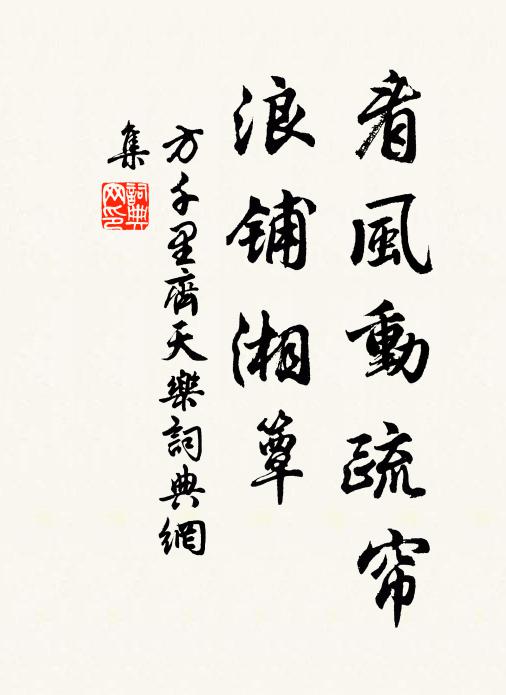 看風動疏帘
浪铺湘簟
方千里齊天樂詞典網
集
詞典
网印